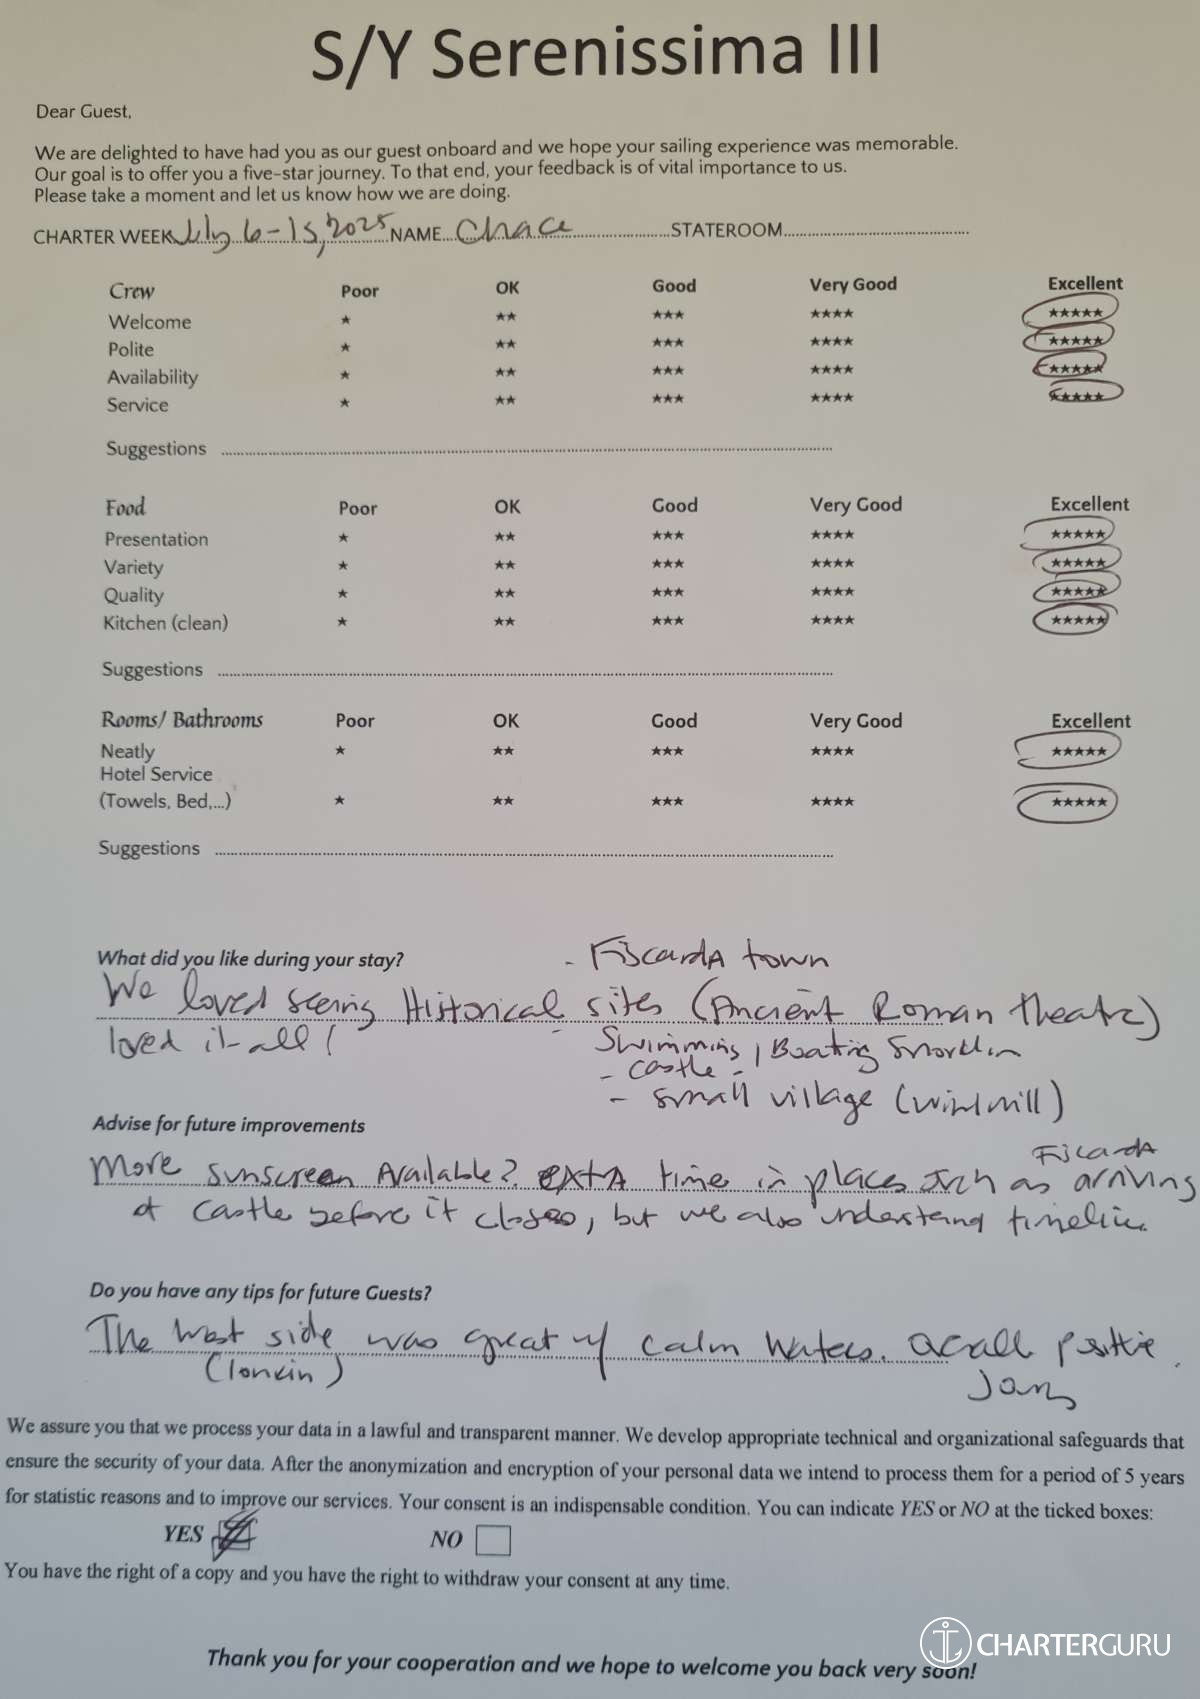 S/Y Serenissima III
Dear Guest,
We are delighted to have had you as our guest onboard and we hope your sailing experience was memorable.
Our goal is to offer you a five-star journey. To that end, your feedback is of vital importance to us.
Please take a moment and let us know how we are doing.
CHARTER WEEK July 6-15, 2025 NAME Chace STATEROOM
Crew Poor OK Good Very Good Excellent
Welcome ★ ★★ ★★★ ★★★★ ★★★★★
Polite ★ ★★ ★★★ ★★★★ ★★★★★
Availability ★ ★★ ★★★ ★★★★ ★★★★★
Service ★ ★★ ★★★ ★★★★ ★★★★★
Suggestions
Food Poor OK Good Very Good Excellent
Presentation ★ ★★ ★★★ ★★★★ ★★★★★
Variety ★ ★★ ★★★ ★★★★ ★★★★★
Quality ★ ★★ ★★★ ★★★★ ★★★★★
Kitchen (clean) ★ ★★ ★★★ ★★★★ ★★★★★
Suggestions
Rooms/ Bathrooms Poor OK Good Very Good Excellent
Neatly ★ ★★ ★★★ ★★★★ ★★★★★
Hotel Service
(Towels, Bed,...) ★ ★★ ★★★ ★★★★ ★★★★★
Suggestions
What did you like during your stay? - FiscardA town
We loved seeing Historical sites (Ancient Roman theatre)
loved it all! - Swimming, Boating
- castle -
- small village (windmill)
Advise for future improvements
FiscardA
More sunscreen Available? extra time in places such as arriving
at castle before it closes, but we also understand timeline
Do you have any tips for future Guests?
The west side was great w/ calm waters.
We assure you that we process your data in a lawful and transparent manner. We develop appropriate technical and organizational safeguards that
ensure the security of your data. After the anonymization and encryption of your personal data we intend to process them for a period of 5 years
for statistic reasons and to improve our services. Your consent is an indispensable condition. You can indicate YES or NO at the ticked boxes:
YES NO
You have the right of a copy and you have the right to withdraw your consent at any time.
Thank you for your cooperation and we hope to welcome you back very soon!
CHARTERGURU